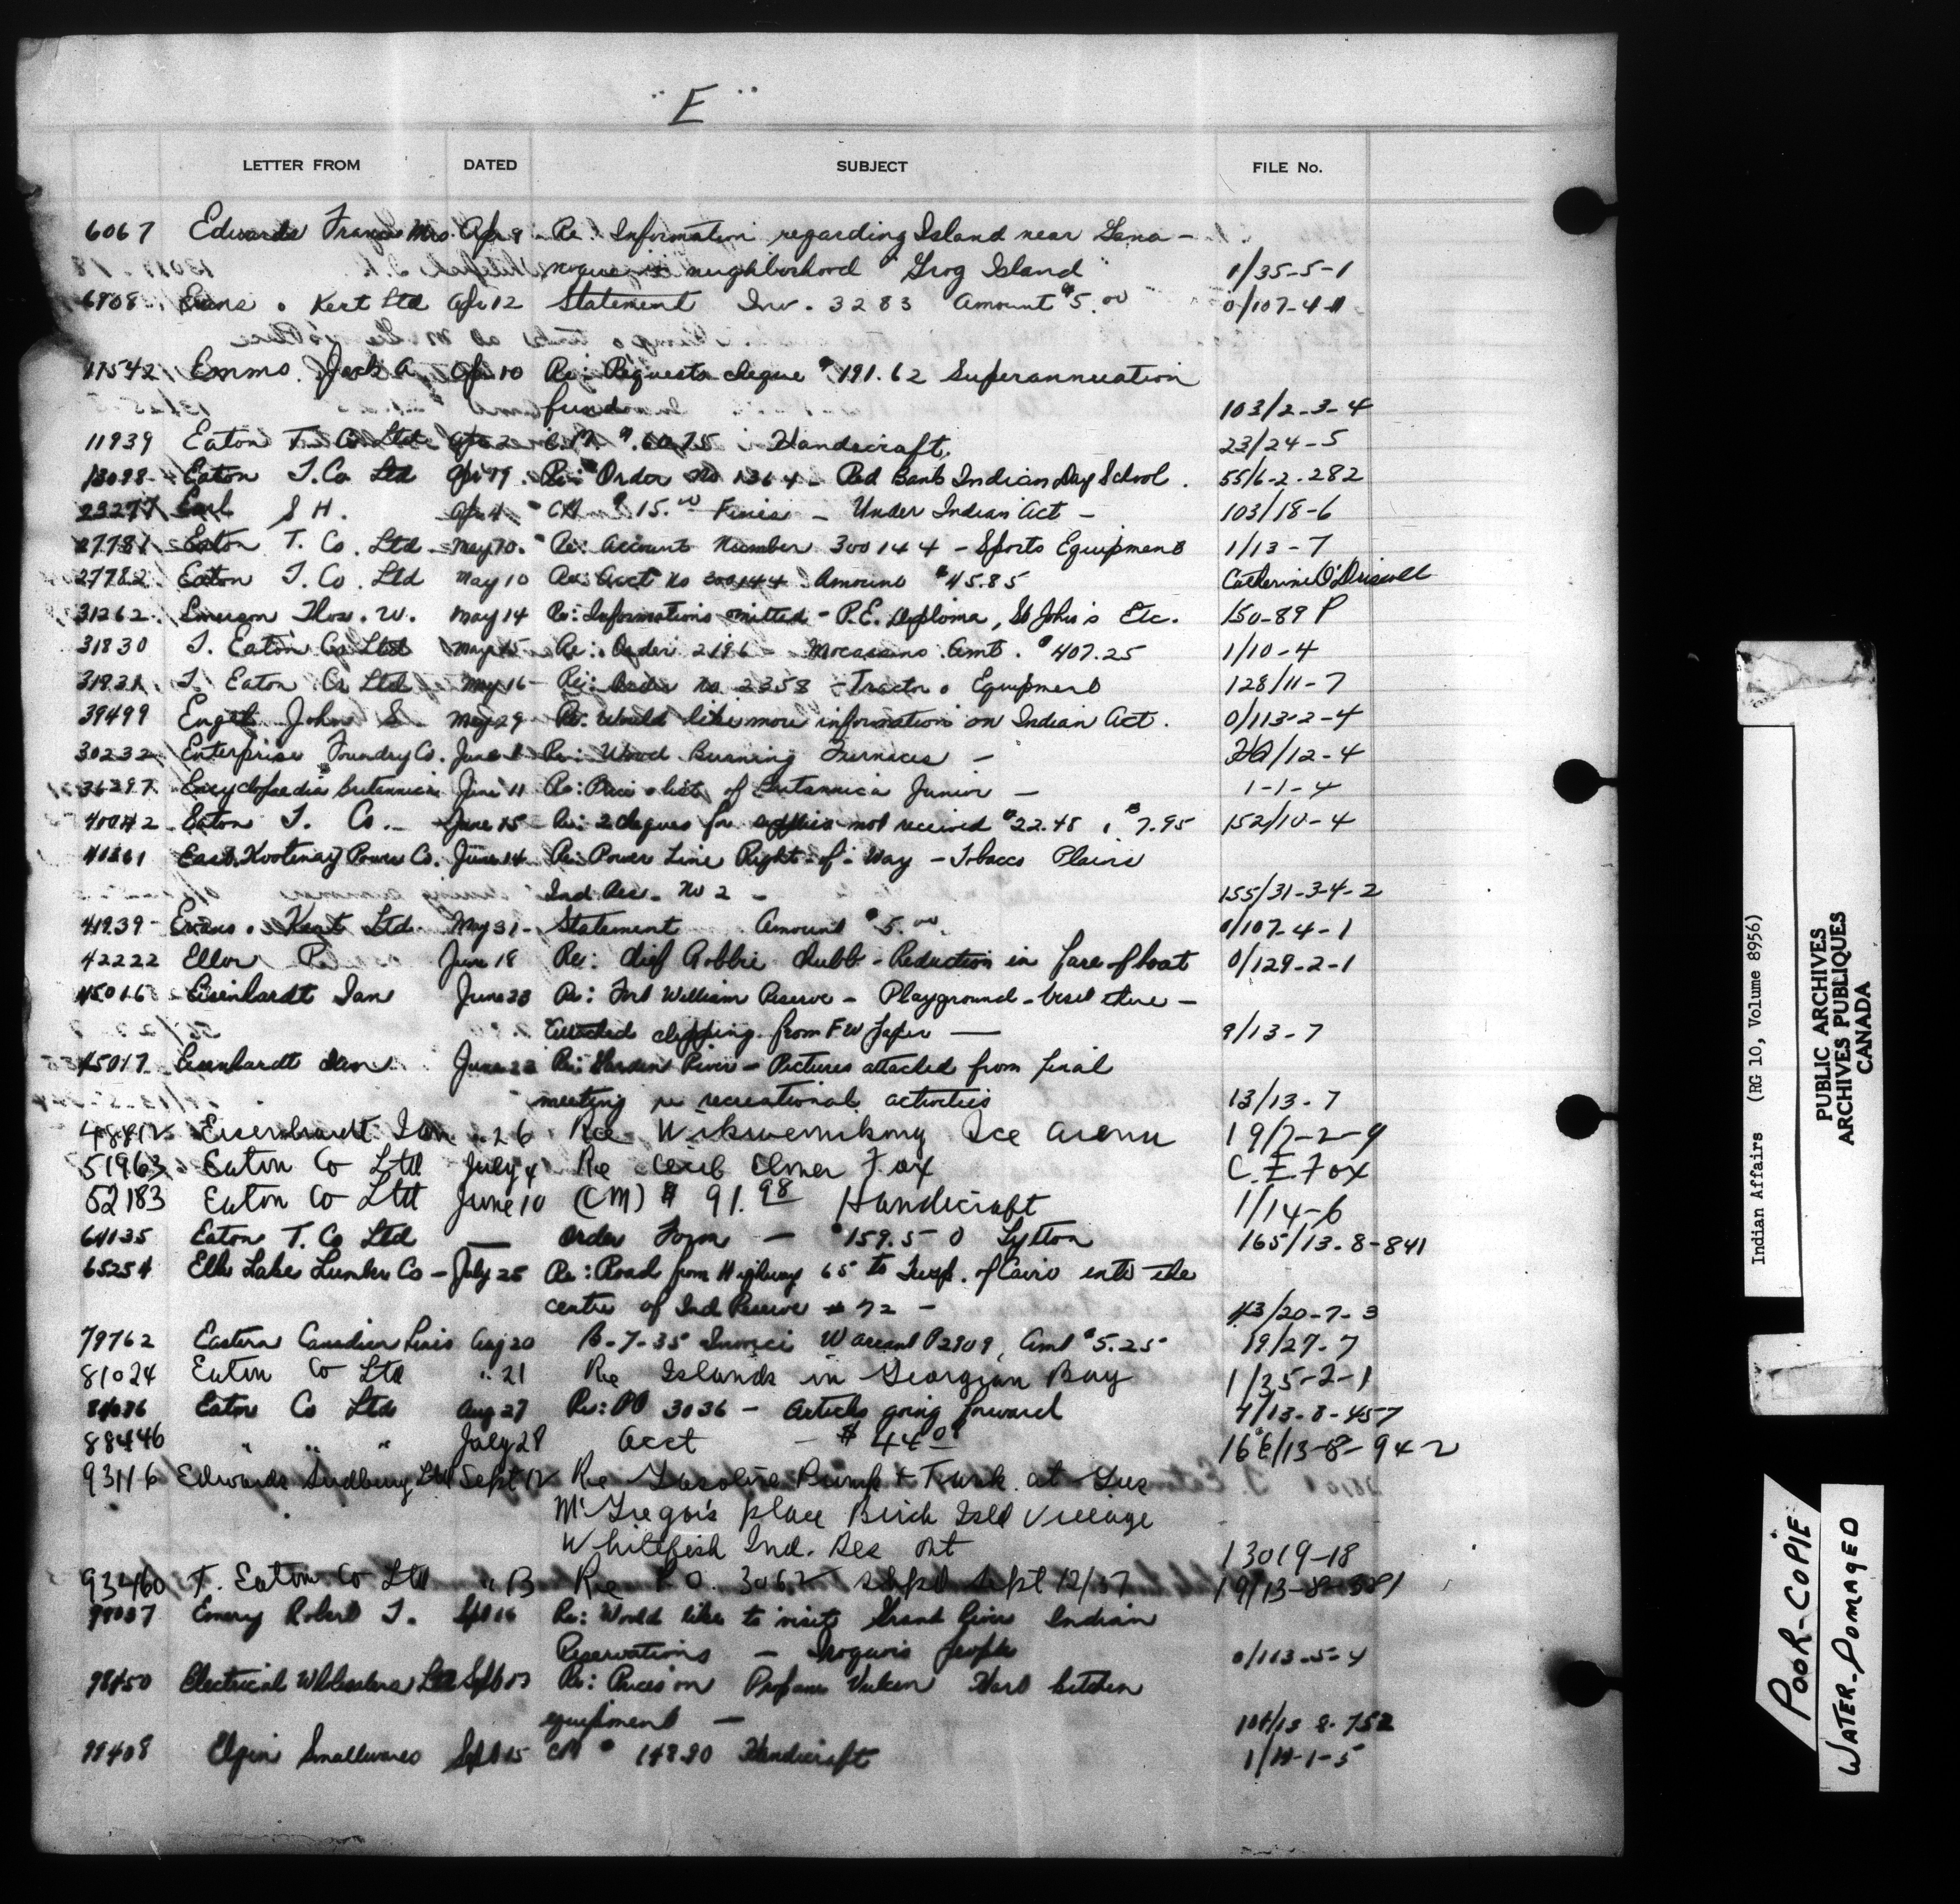 "E"
LETTER FROM DATED SUBJECT FILE No.
6067 Edwards Francis Mrs Apr 9 Re: Information regarding Island near Gana-
noque & neighborhood "Grog Island" 1/35-5-1
6908 Evans & Kert Ltd Apr 12 Statement Inv. 3283 Amount $5.00 0/107-4-1
17542 Emms. Jack A. Apr 10 Re: Requests cheque $191.62 Superannuation
fund 103/2-3-4
11939 Eaton T. Co Ltd Apr 2 CM $60.75 Handicraft. 23/24-5
13098 Eaton T. Co Ltd Apr 19 Re: Order No 1364 - Red Bank Indian Day School. 55/6-2-282
23277 Earl S H. Apr 4 CM $15.00 Fines - Under Indian Act - 103/18-6
27781 Eaton T. Co. Ltd May 10. Re: Account Number 300144 - Sports Equipment 1/13-7
27782 Eaton T. Co. Ltd May 10 Re: Acct No 300144 Amount $45.85 Catherine O'Driscoll
31262 Emerson Thos. W. May 14 Re: Informations omitted - P.E. Diploma, St John's Etc. 150-89 P
31830 T. Eaton Co Ltd May 15 Re: Order 2196 - Mocassins Amt. $407.25 1/10-4
31931 T. Eaton Co Ltd May 16 Re: Order No 2358 - Tractor & Equipment 128/11-7
39499 Engel John S. May 29 Re: Would like more information on Indian Act. 0/113-2-4
30232 Enterprise Foundry Co. June Re: Wood Burning Furnaces - /12-4
36297 Encyclopaedia Britannica June 11 Re: Price list of Britannica Junior - 1-1-4
40042 Eaton T. Co. June 15 Re: 2 cheques for supplies not received $22.48 & $7.95 152/10-4
41261 East Kootenay Power Co. June 14 Re: Power Line Right-of-Way - Tobacco Plains
Ind Res. No 2 - 155/31-3-4-2
41939 Evans & Kert Ltd. May 31 Statement Amount $5.00. 0/107-4-1
42222 Ellor P. June 18 Re: Chief Robbie Chubb - Reduction in fare of boat 0/129-2-1
45016 Eisenhardt Ian June 23 Re: Fort William Reserve - Playground - there -
attached clipping from F W Paper - 9/13-7
45017 Eisenhardt Ian June 23 Re: Garden River - Pictures attached from final
meeting re recreational activities 13/13-7
48412 Eisenhardt Ian " 26 Re Wikwemikong Ice Arena 19/7-2-9
51963 Eaton Co Ltd July 4 Re Cecil Elmer Fox C. E. Fox
52183 Eaton Co Ltd June 10 (CM) $ 91.98 Handicraft 1/14-6
64135 Eaton T. Co Ltd — Order Form - $159.50 Lytton 165/13-8-841
65254 Elk Lake Lumber Co - July 25 Re: Road from Highway 65 to Twp. of Cairo into the
centre of Ind Reserve # 72 - 43/20-7-3
79762 Eastern Canadian Aug 20 B-7-35 Invoice Warrant P2909, Amt $5.25 19/27-7
81024 Eaton Co Ltd " 21 Re Islands in Georgian Bay 1/35-2-1
84036 Eaton Co Ltd Aug 27 Re: PO 3036 - articles going forward 4/13-8-457
88446 " " " July 28 Acct - $ 44.09 /13-8-942
93116 Edwards Sudbury Ltd Sept 12 Re Gasoline Pump & Tank at Gus
McGregor's place Birch Isld Village
Whitefish Ind. Res Ont 13019-18
93460 T. Eaton Co Ltd " 13 Re P.O. 3062 Sept 12/57 19/13-8-
98037 Emery Robert J. Sept 16 Re: Would like to visit Grand River Indian
Reservations - Iroquois people 0/113-5-4
98450 Electrical Wholesalers Ltd Sept Re: Prices on Propane Vulcan Hart kitchen
equipment - 104/13-8-752
99408 Elgin Smallwares Sept 15 CM $ 148.80 Handicraft 1/14-1-5
Indian Affairs (RG 10, Volume 8956)
PUBLIC ARCHIVES
ARCHIVES PUBLIQUES
CANADA
POOR-COPIE
WATER-DOMAGED